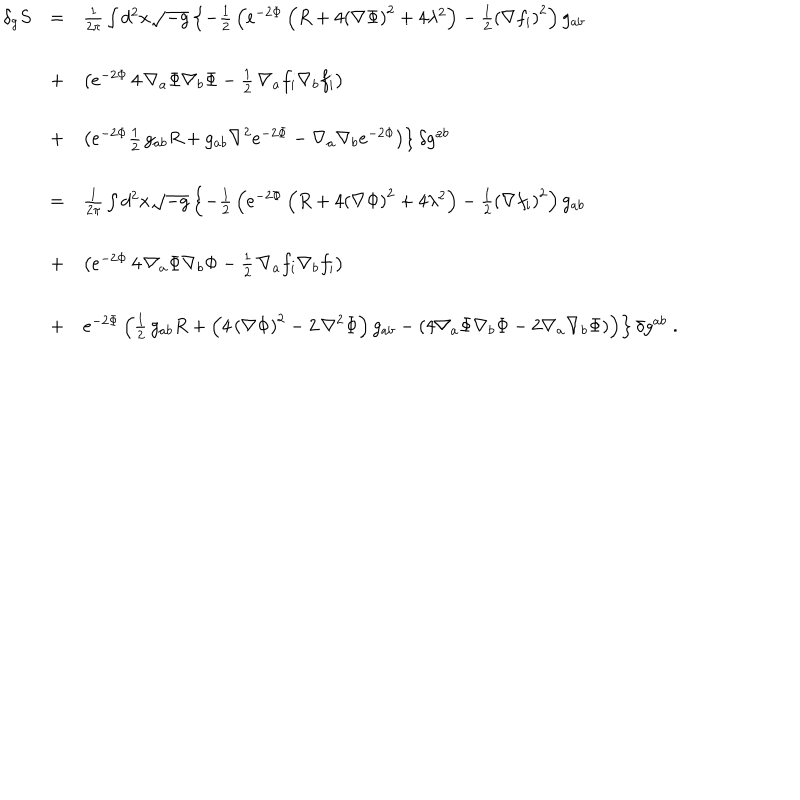 δ_g S = \frac{1}{2π} ∫ d²x √{-g} { -\frac{1}{2} ( e^{-2Φ} ( R + 4(∇Φ)² + 4λ² ) - \frac{1}{2} (∇f_i)² ) g_{ab}
+ ( e^{-2Φ} 4 ∇_a Φ ∇_b Φ - \frac{1}{2} ∇_a f_i ∇_b f_i )
+ ( e^{-2Φ} \frac{1}{2} g_{ab} R + g_{ab} ∇² e^{-2Φ} - ∇_a ∇_b e^{-2Φ} ) } δg^{ab}
= \frac{1}{2π} ∫ d²x √{-g} { -\frac{1}{2} ( e^{-2Φ} ( R + 4(∇Φ)² + 4λ² ) - \frac{1}{2} (∇f_i)² ) g_{ab}
+ ( e^{-2Φ} 4 ∇_a Φ ∇_b Φ - \frac{1}{2} ∇_a f_i ∇_b f_i )
+ e^{-2Φ} ( \frac{1}{2} g_{ab} R + ( 4 (∇Φ)² - 2 ∇² Φ ) g_{ab} - ( 4 ∇_a Φ ∇_b Φ - 2 ∇_a ∇_b Φ ) ) } δg^{ab} .